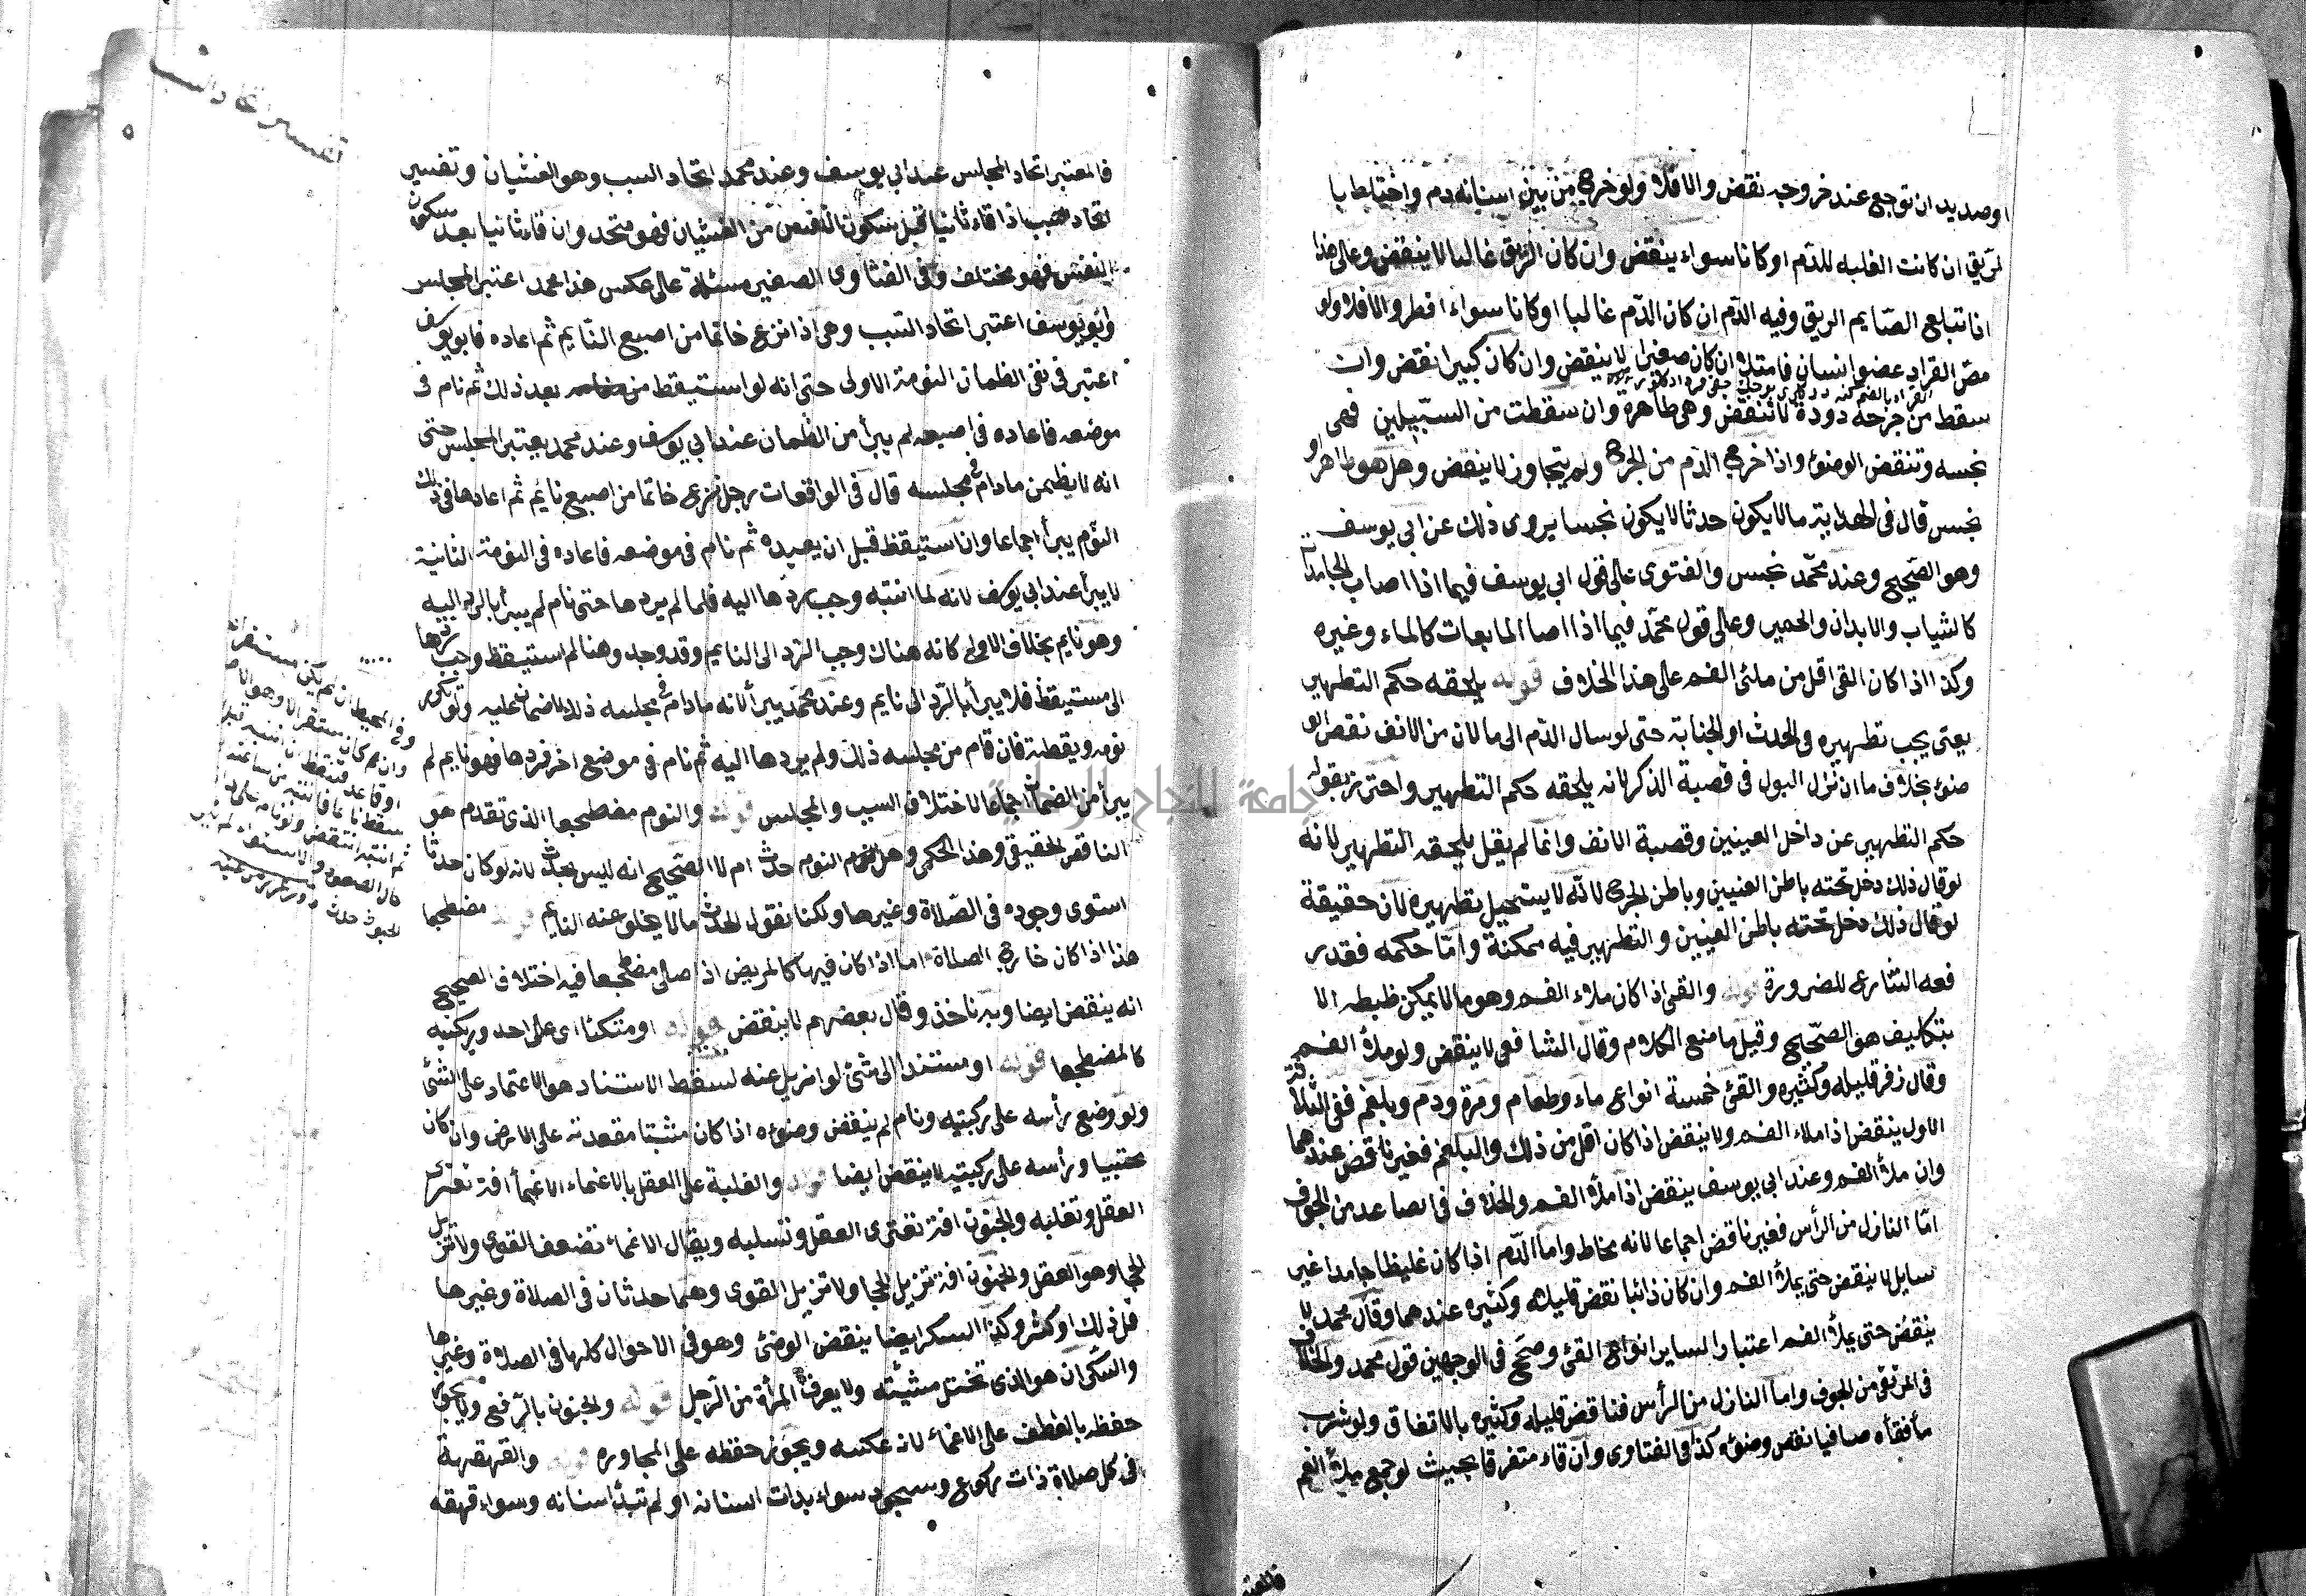 او صديد ان توجع عند خروجه نقض والا فلا ولو خرج من بين اسنانه دم واختلط با
لريق ان كانت الغلبه للدم او كانا سواء ينقض وان كان الريق غالبا لا ينقض وعلى هذا
اذا ابتلع الصايم الريق وفيه الدم ان كان الدم غالبا او كانا سواء افطر والا فلا ولو
مص القراد عضو انسان فامتلا ان كان صغيرا لا ينقض وان كان كبيرا نقض وان
سقط من جرحه دودة لا تنقض وهي طاهرة وان سقطت من السبيلين فهي
نجسه وتنقض الوضوء واذا خرج الدم من الجرح ولم يتجاوز لا ينقض وهل هو طاهر او
نجس قال في الهداية ما لا يكون حدثا لا يكون نجسا يروى ذلك عن ابي يوسف
وهو الصحيح وعند محمد نجس والفتوى على قول ابي يوسف فيما اذا اصاب الجامدات
كالثياب والابدان والحصير وعلى قول محمد فيما اذا اصاب المايعات كالماء وغيره
وكذا اذا كان القي اقل من ملئ الفم على هذا الخلاف قوله يلحقه حكم التطهير
يعني يجب تطهيره في الحدث او الجنابة حتى لو سال الدم الى ما لان من الانف نقض الو
ضوء بخلاف ما ان نزل البول في قصبة الذكر لانه يلحقه حكم التطهير واحترز بقوله
حكم التطهير عن داخل العينين وقصبة الانف وانما لم يقل يلحقه التطهير لانه
لو قال ذلك دخل تحته باطن العينين وباطن الجرح لانه لا يستحيل تطهيره لان حقيقة
لو قال ذلك دخل تحته باطن العينين والتطهير فيه ممكنة واما حكمه فقد ر
فعه الشارع للضرورة قوله والقي اذا كان ملاء الفم وهو ما لا يمكن ظبطه الا
بتكليف هو الصحيح وقيل ما منع الكلام وقال الشافعي لا ينقض ولو ملأ الفم
وقال زفر قليله وكثيره والقئ خمسة انواع ماء وطعام ومرة ودم وبلغم ففي الثلاثة
الاول ينقض اذا ملاء الفم ولا ينقض اذا كان اقل من ذلك والبلغم فغير ناقض عندهما
وان ملأ الفم وعند ابي يوسف ينقض اذا ملأ الفم والخلاف في الصاعد من الجوف
اما النازل من الرأس فغير ناقض اجماعا لانه مخاط واما الدم اذا كان غليظا جامدا غير
سايل لا ينقض حتى يملأ الفم وان كان ذائبا نقض قليله وكثيره عندهما وقال محمد لا
ينقض حتى يملأ الفم اعتبارا لساير انواع القئ وصحح في الوجهين قول محمد والخلاف
في المرتقى من الجوف واما النازل من الرأس فناقض قليله وكثيره بالاتفاق ولو شرب
ماء فقاءه صافيا نقض وضوءه كذا في الفتاوى وان قاء متفرقا بحيث لو جمع ملأ الفم
فالمعتبر
فالمعتبر اتحاد المجلس عند ابي يوسف وعند محمد اتحاد السبب وهو الغثيان وتفسير
اتحاد السبب اذا قاء ثانيا قبل سكون النفس من الغثيان فهو متحد وان قاء ثانيا بعد سكون
النفس فهو مختلف وفي الفتاوى الصغير مسئلة على عكس هذا محمد اعتبر المجلس
وابو يوسف اعتبر اتحاد السبب وهي اذا نزع خاتما من اصبع النايم ثم اعاده فابو يوسف
اعتبر في نفي الظمان النومة الاولى حتى انه لو استيقظ من بعد ذلك ثم نام في
موضعه فاعاده في اصبعه لم يبرأ من الظمان عند ابي يوسف وعند محمد يعتبر المجلس حتى
انه لا يظمن ما دام في مجلسه قال في الواقعات رجل نزع خاتما من اصبع نايم ثم اعادها في ذلك
النوم يبرأ اجماعا وان استيقظ قبل ان يعيده ثم نام في موضعه فاعاده في النومة الثانية
لا يبرأ عند ابي يوسف لانه لما انتبه وجب ردها اليه فلما لم يردها حتى نام لم يبرأ بالرد اليه
وهو نايم بخلاف الاولى كانه هناك وجب الرد الى النايم وقد وجد وهنا لم استيقظ وجب ردها
الى مستيقظ فلا يبرأ بالرد الى نايم وعند محمد يبرأ لانه ما دام في مجلسه ذلك لا ضمان عليه ولو تكرر
نومه ويقظته فان قام من مجلسه ذلك ولم يردها اليه ثم نام في موضع اخر فردها فهو نايم لم
يبرأ من الضمان اجماعا لاختلاف السبب والمجلس قوله والنوم مضطجعا الذي تقدم هو
الناقض الحقيقي وهذا الحكمي وهل النوم حدث ام لا الصحيح انه ليس بحدث لانه لو كان حدثا
استوى وجوده في الصلاة وغيرها ولكنا نقول الحدث ما لا يخلو عنه النايم قوله مضطجعا
هذا اذا كان خارج الصلاة اما اذا كان فيها كالمريض اذا صلى مضطجعا فيه اختلاف الصحيح
انه ينقض ايضا وبه ناخذ وقال بعضهم لا ينقض قوله او متكئا اي على احد وركيه
كالمضطجع قوله او مستندا الى شئ لو ازيل عنه لسقط الاستناد هو الاعتماد على الشئ
ولو وضع رأسه على ركبتيه ونام لم ينقض وضوءه اذا كان مثبتا مقعدته على الارض وان كان
محتبيا ورأسه على ركبتيه لا ينقض ايضا قوله والغلبة على العقل بالاغماء الاغماء افة تعتري
العقل وتغلبه والجنون افة تعتري العقل وتسلبه ويقال الاغماء تضعف القوى ولا تزيل
الحجا وهو العقل والجنون افة تزيل الحجا ولا تزيل القوى وهما حدثان في الصلاة وغيرها
قل ذلك او كثر وكذا السكر ايضا ينقض الوضئ وهو في الاحوال كلها في الصلاة وغيرها
والسكران هو الذي تختل مشيته ولا يعرف المرأة من الرجل قوله والجنون بالرفع ولا يجوز
حفظه بالعطف على الاغماء لانه عكسه ويجوز حفظه على المجاورة قوله والقهقهة
في كل صلاة ذات ركوع وسجود سواء بدات اسنانه او لم تبدأ اسنانه وسواء قهقه
تفسير اتحاد السبب
جامعة النجاح الوطنية